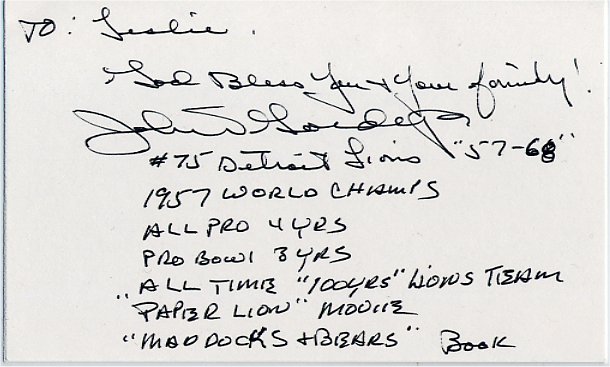 TO: Leslie.
God Bless You & Your family!
John Gordy Jr
#75 Detroit Lions "57-68"
1957 WORLD CHAMPS
ALL PRO 4 YRS
PRO BOWL 3 YRS
"ALL TIME "100YRS" LIONS TEAM
PAPER LION" MOVIE
"MADDOCKS & BEARS" BOOK